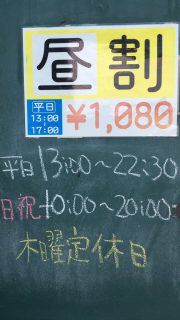 昼割
平日
13:00
~
17:00
¥1,080
平日 13:00~22:30
日祝 10:00~20:00
木曜定休日